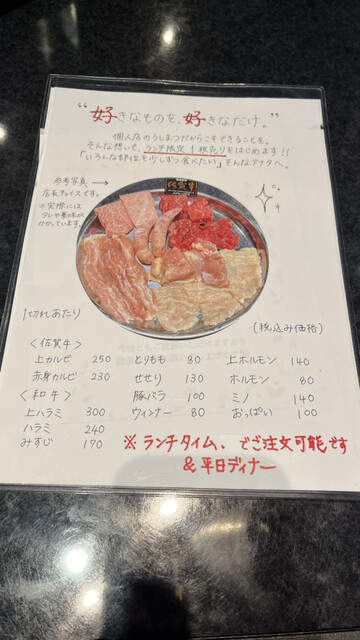 "好きなものを、好きなだけ。"
個人店のうしまつだからこそできることを。
そんな想いで、ランチ限定1枚売りをはじめます!!
「いろんな部位を少しずつ食べたい」そんなアナタへ。
参考写真→
店長チョイスです。
※実際には
タレや薬味が
かかっています。
佐賀牛
1切れあたり
(税込み価格)
<佐賀牛>
上カルビ 250
赤身カルビ 230
<和牛>
上ハラミ 300
ハラミ 240
みすじ 170
とりもも 80
せせり 130
豚バラ 100
ウィンナー 80
上ホルモン 140
ホルモン 80
ミノ 140
おっぱい 100
※ランチタイム、でご注文可能です
&平日ディナー